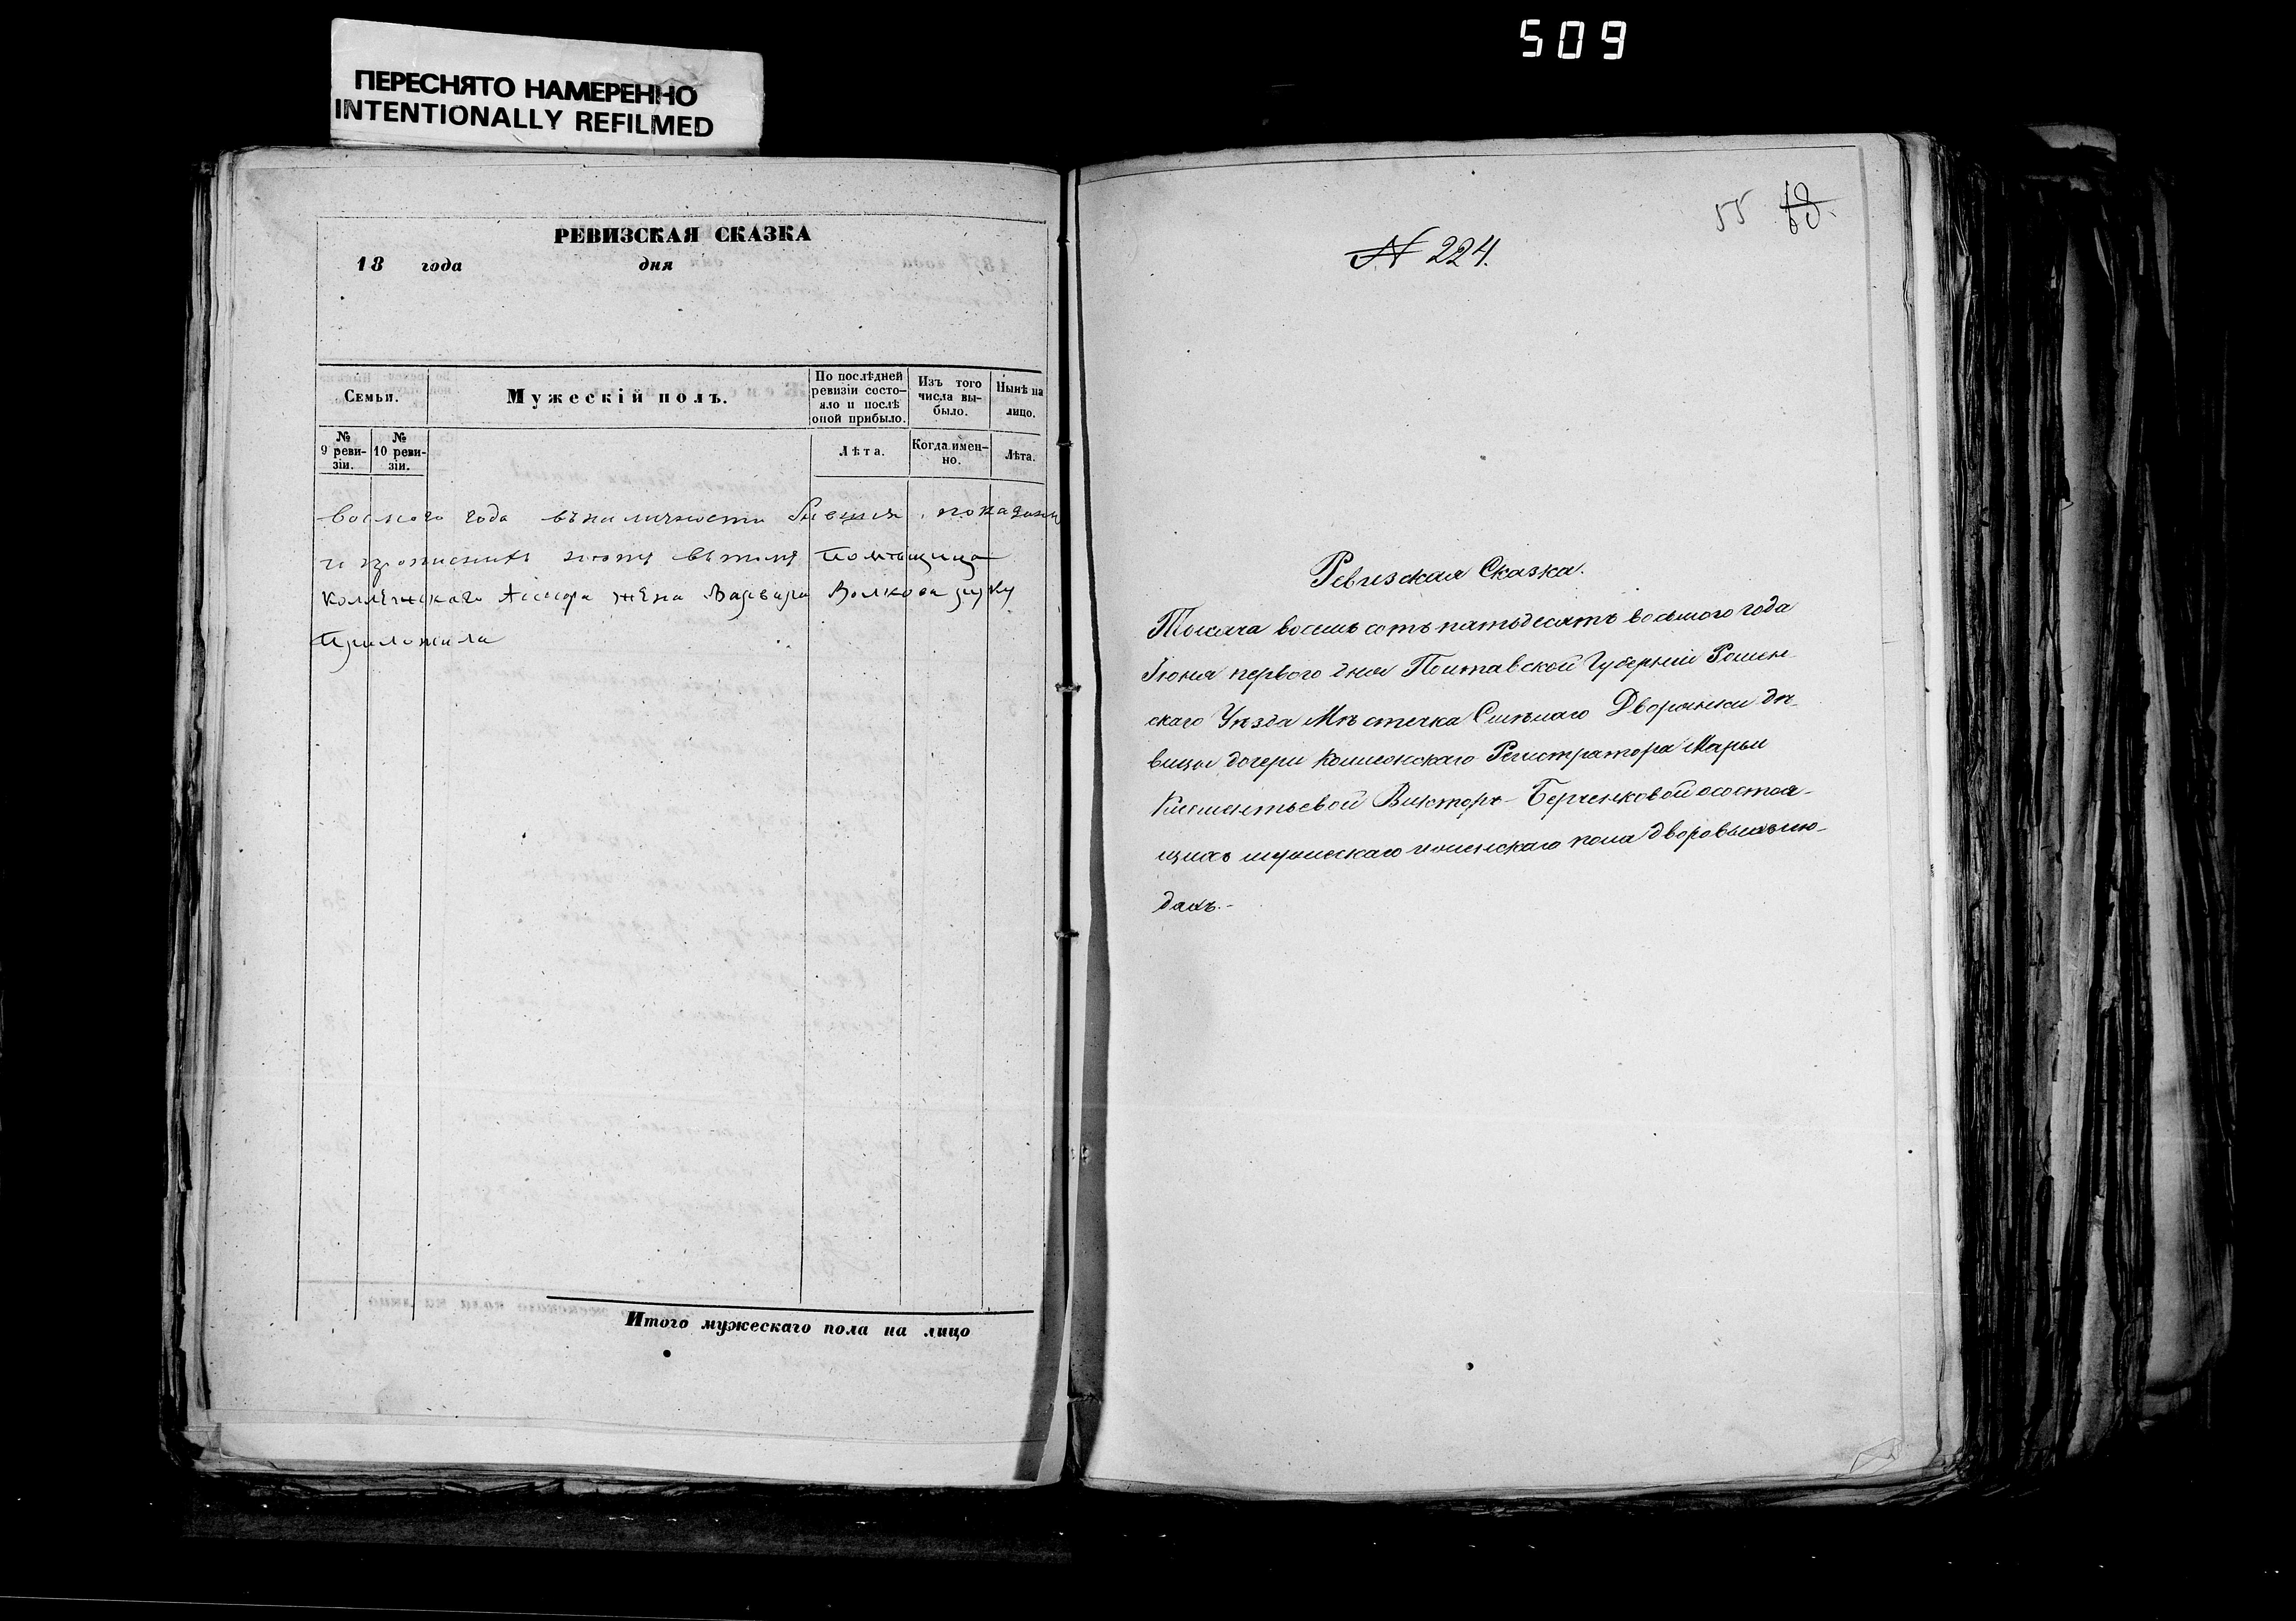 509
ПЕРЕСНЯТО НАМЕРЕННО
INTENTIONALLY REFILMED
РЕВИЗСКАЯ СКАЗКА
18 года дня
Семьи.
Мужескій полъ.
По послѣдней ревизіи состояло и послѣ оной прибыло.
Изъ того числа выбыло.
Нынѣ на лицо.
№ 9 ревизіи.
№ 10 ревизіи.
Лѣта.
Когда именно.
Лѣта.
восмого года въ наличности
Помѣщица
жена Варвара Волкова руку
Приложила
Итого мужескаго пола на лицо
55
N 224.
Ревизская Сказка.
Тысяча восемь сотъ пятьдесятъ восьмого года
Іюня первого дня Полтавской Губерніи Ромен-
скаго Уѣзда Мѣстечка Смѣлаго Дворянки дѣ-
вицы дочери Колежскаго Регистратора Марьи
Климентьевой Викторъ-Берченковой о состоя-
щихъ мужескаго и женскаго пола дворовыхъ лю-
дяхъ.-